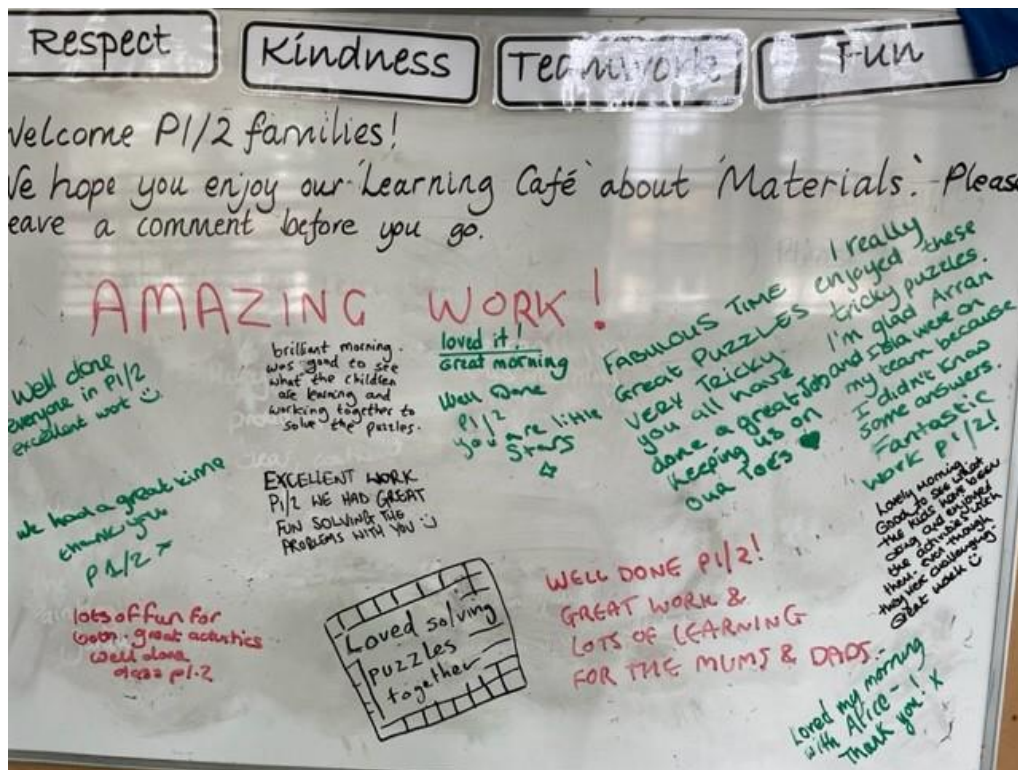 Respect
Kindness
Teamwork
Fun
elcome P1/2 families!
e hope you enjoy our 'Learning Café' about 'Materials'. Pleas
eave a comment before you go.
AMAZING WORK!
Well done
everyone in P1/2
excellent work
brilliant morning.
was good to see
what the children
are learning and
working together to
solve the puzzles.
loved it!
great morning
Well Done
P1/2
you are little
Stars
FABULOUS TIME
Great PUZZLES
VERY TRICKY
you all have
done a great job
keeping us on
our toes
I really
enjoyed these
tricky puzzles.
I'm glad Arran
and Isla were on
my team because
I didn't know
some answers.
Fantastic
work P1/2!
we had a great time
thank you
P1/2 x
EXCELLENT WORK
P1/2 WE HAD GREAT
FUN SOLVING THE
PROBLEMS WITH YOU
Lovely morning
Good to see what
the kids have been
doing and enjoyed
the activities with
them. Even though
they were challenging
Great work
lots of fun for
great activities
well done
class p1.2
Loved solving
puzzles
together
WELL DONE P1/2!
GREAT WORK &
LOTS OF LEARNING
FOR THE MUMS & DADS.
Loved my morning
with Alice - !
Thank you! x